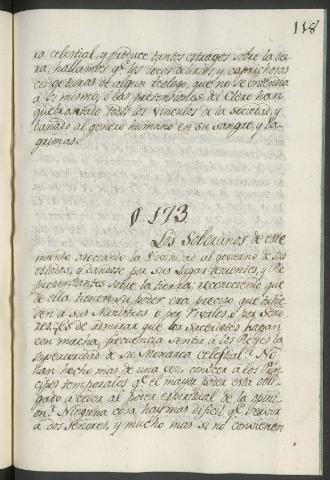 118
ra celestial, y produce tantos estragos sobre la tier
ra; hallamos q.e los locos delirios y caprichosas
conjeturas de algun teologo, que no se entendia
à los mismo, ò las pretensiones del Clero han
quebrantado todos los vinculos de la Sociedad, y
bañado al genero humano en su sangre, y la-
grimas.
§ 173
Los Soberanos de este
mundo asociando la Divinidad al govierno de sus
estados, y dandose por sus Lugar-tenientes, y Re
presentantes sobre la tierra, reconociendo que
de ella tienen su poder era preciso que tubie
sen a sus Ministros ò por Rivales, ò por Seño-
res. ¿Es de admirar que los Sacerdotes hagan
con mucha frecuencia sentir à los Reyes la
superioridad de su Monarca celestial? ¿No
han hecho mas de una vez conocer a los Prin
cipes temporales q.e el mayor poder esta obli-
gado a ceder al poder espiritual de la opini
on? Ninguna cosa hay mas dificil q.e servir
a dos Señores, y mucho mas si no convienen